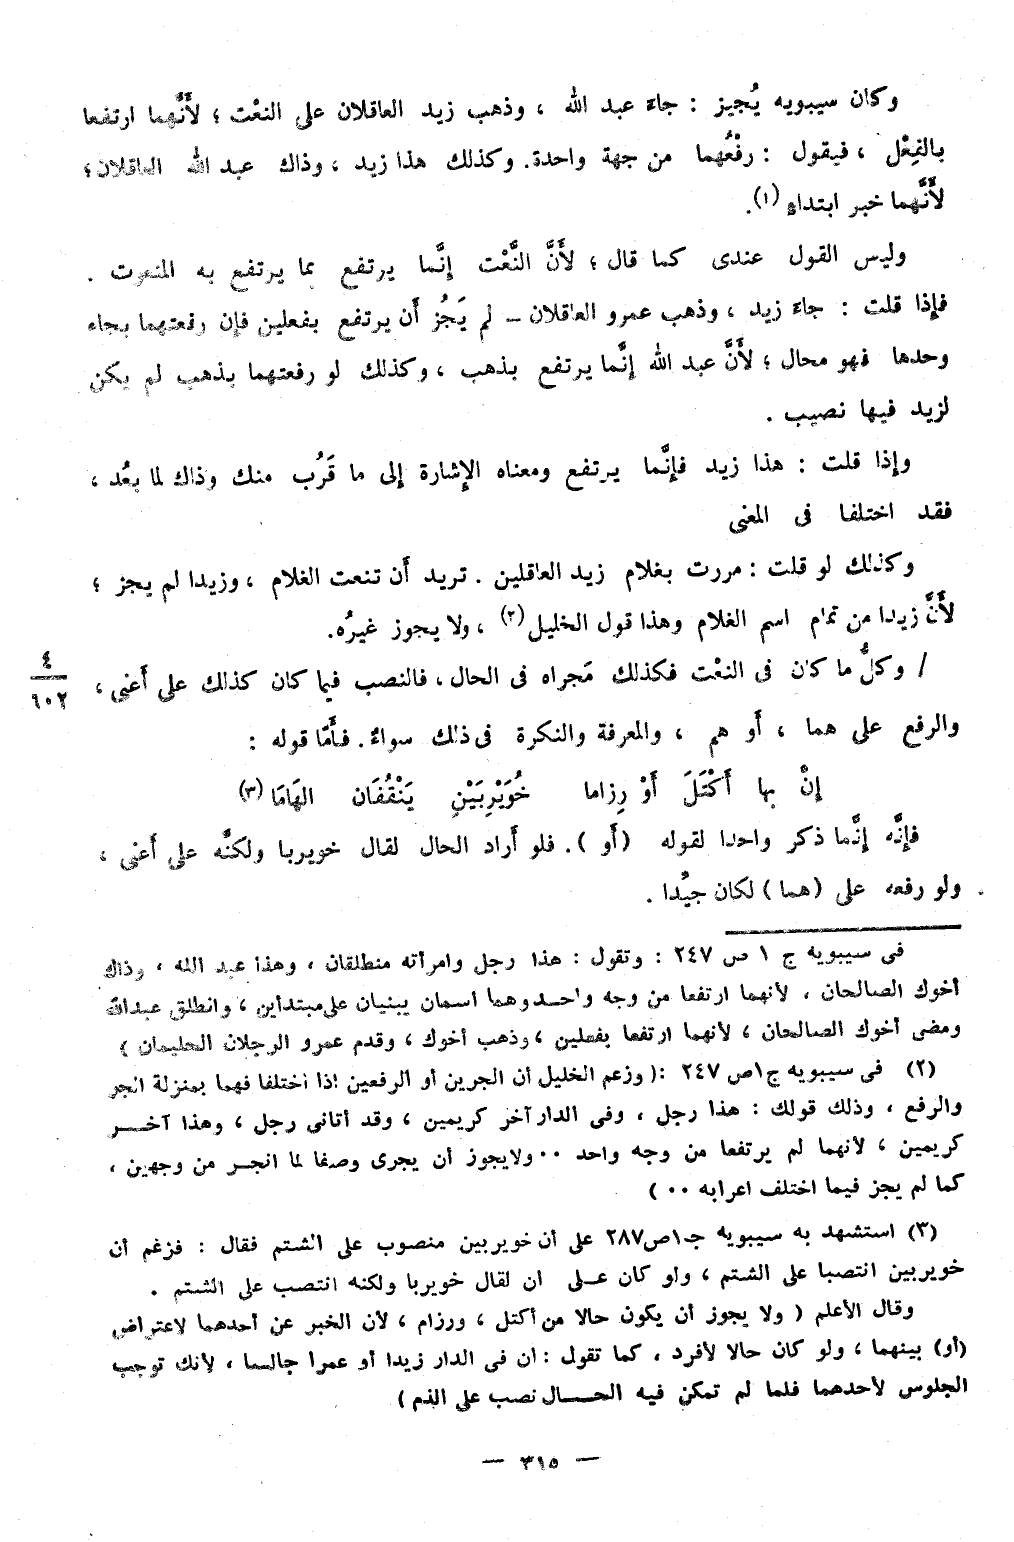 وكان سيبويه يُجيز : جاءَ عبد الله ، وذهب زيد العاقلان على النعْت ؛ لأَنَّهما ارتفعا
بالفِعْل ، فيقول : رفْعُهما من جهة واحدة. وكذلك هذا زيد ، وذاك عبد الله العاقلان؛
لأَنَّهما خبر ابتداءٍ (١).
وليس القول عندى كما قال ؛ لأَنَّ النَّعْت إنَّما يرتفع بما يرتفع به المنعوت .
فإِذا قلت : جاءَ زيد ، وذهب عمرو العاقلان – لم يَجُز أَن يرتفع بفعلين فإن رفعتهما بجاء
وحدها فهو محال ؛ لأَنَّ عبد الله إنَّما يرتفع بذهب ، وكذلك لو رفعتهما بذهب لم يكن
لزيد فيها نصيب .
وإِذا قلت : هذا زيد فإِنَّما يرتفع ومعناه الإِشارة إلى ما قَرُب منك وذاك لما بعُد ،
فقد اختلفا فى المعنى
وكذلك لو قلت : مررت بغلام زيد العاقلين . تريد أَن تنعت الغلام ، وزيدا لم يجز ؛
لأَنَّ زيدا من تمام اسم الغلام وهذا قول الخليل (٢) ، ولا يجوز غيرُه.
/ وكلُّ ما كان فى النعْت فكذلك مَجراه فى الحال ، فالنصب فيما كان كذلك على أَعنى ،
٤
٦٠٢
والرفع على هما ، أَو هم ، والمعرفة والنكرة فى ذلك سواءٌ . فأَمَّا قوله :
إنَّ بها أَكْتَلَ أَوْ رِزاما خُوَيْرِبَيْنِ يَنْقُفَان الهَامَا (٣)
فإِنَّه إنَّما ذكر واحدا لقوله (أَو ) . فلو أَراد الحال لقال خويربا ولكنَّه على أَعنى ،
ولو رفعه على (هما) لكان جيِّدا .
فى سيبويه ج ١ ص ٢٤٧ : وتقول : هذا رجل وامرأته منطلقان ، وهذا عبد الله ، وذاك
أخوك الصالحان ، لأنهما ارتفعا من وجه واحد وهما اسمان يبنيان على مبتدأين ، وانطلق عبد الله
ومضى أخوك الصالحان ، لأنهما ارتفعا بفعلين ، وذهب أخوك ، وقدم عمرو الرجلان الحليمان )
(٢) فى سيبويه ج١ص ٢٤٧ :( وزعم الخليل أن الجرين أو الرفعين اذا اختلفا فهما بمنزلة الجر
والرفع ، وذلك قولك : هذا رجل ، وفى الدار آخر كريمين ، وقد أتانى رجل ، وهذا آخر
كريمين ، لأنهما لم يرتفعا من وجه واحد ٠٠ ولايجوز أن يجرى وصفا لما انجر من وجهين ،
كما لم يجز فيما اختلف اعرابه ٠٠ )
(٣) استشهد به سيبويه جـ١ص٢٨٧ على أن خويربين منصوب على الشتم فقال : فزعم أن
خويربين انتصبا على الشتم ، ولو كان على ان لقال خويربا ولكنه انتصب على الشتم .
وقال الأعلم ( ولا يجوز أن يكون حالا من أكتل ، ورزام ، لأن الخبر عن أحدهما لاعتراض
(أو) بينهما ، ولو كان حالا لأفرد ، كما تقول : ان فى الدار زيدا أو عمرا جالسا ، لأنك توجب
الجلوس لأحدهما فلما لم تمكن فيه الحال نصب على الذم )
— ٣١٥ —